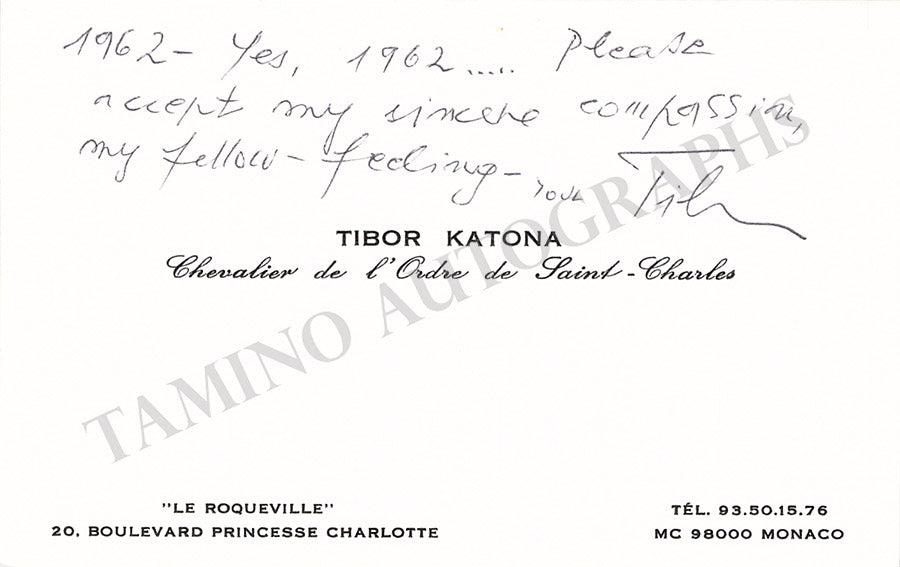 1962 - Yes, 1962..... Please
accept my sincere compassion,
my fellow-feeling - your Tibor
TIBOR KATONA
Chevalier de l'Ordre de Saint-Charles
TAMINO AUTOGRAPHS
"LE ROQUEVILLE"
20, BOULEVARD PRINCESSE CHARLOTTE
TÉL. 93.50.15.76
MC 98000 MONACO